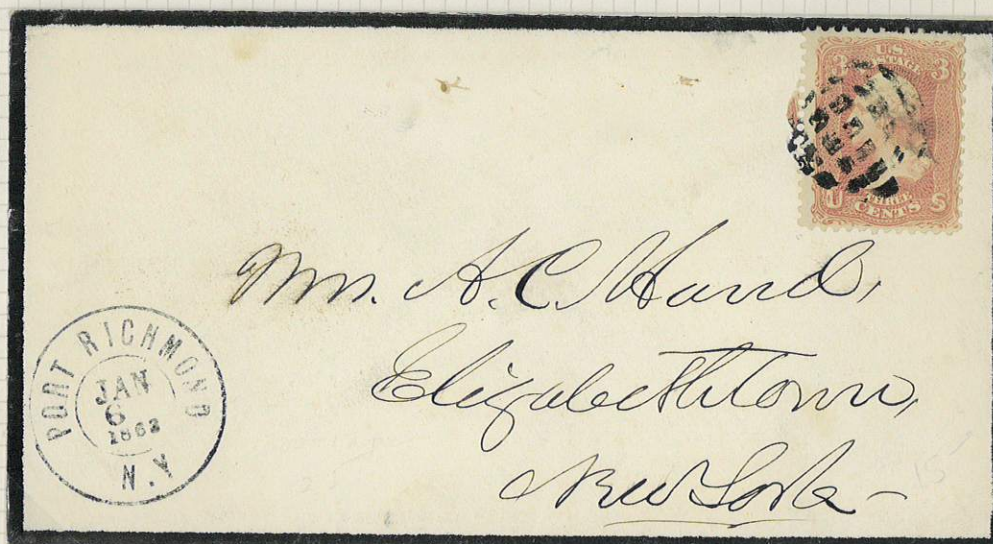 U.S. POSTAGE
3 3
U S
THREE CENTS
Mrs. A. C. Hand,
Elizabethtown,
New York -
PORT RICHMOND
JAN
6
1863
N.Y
15